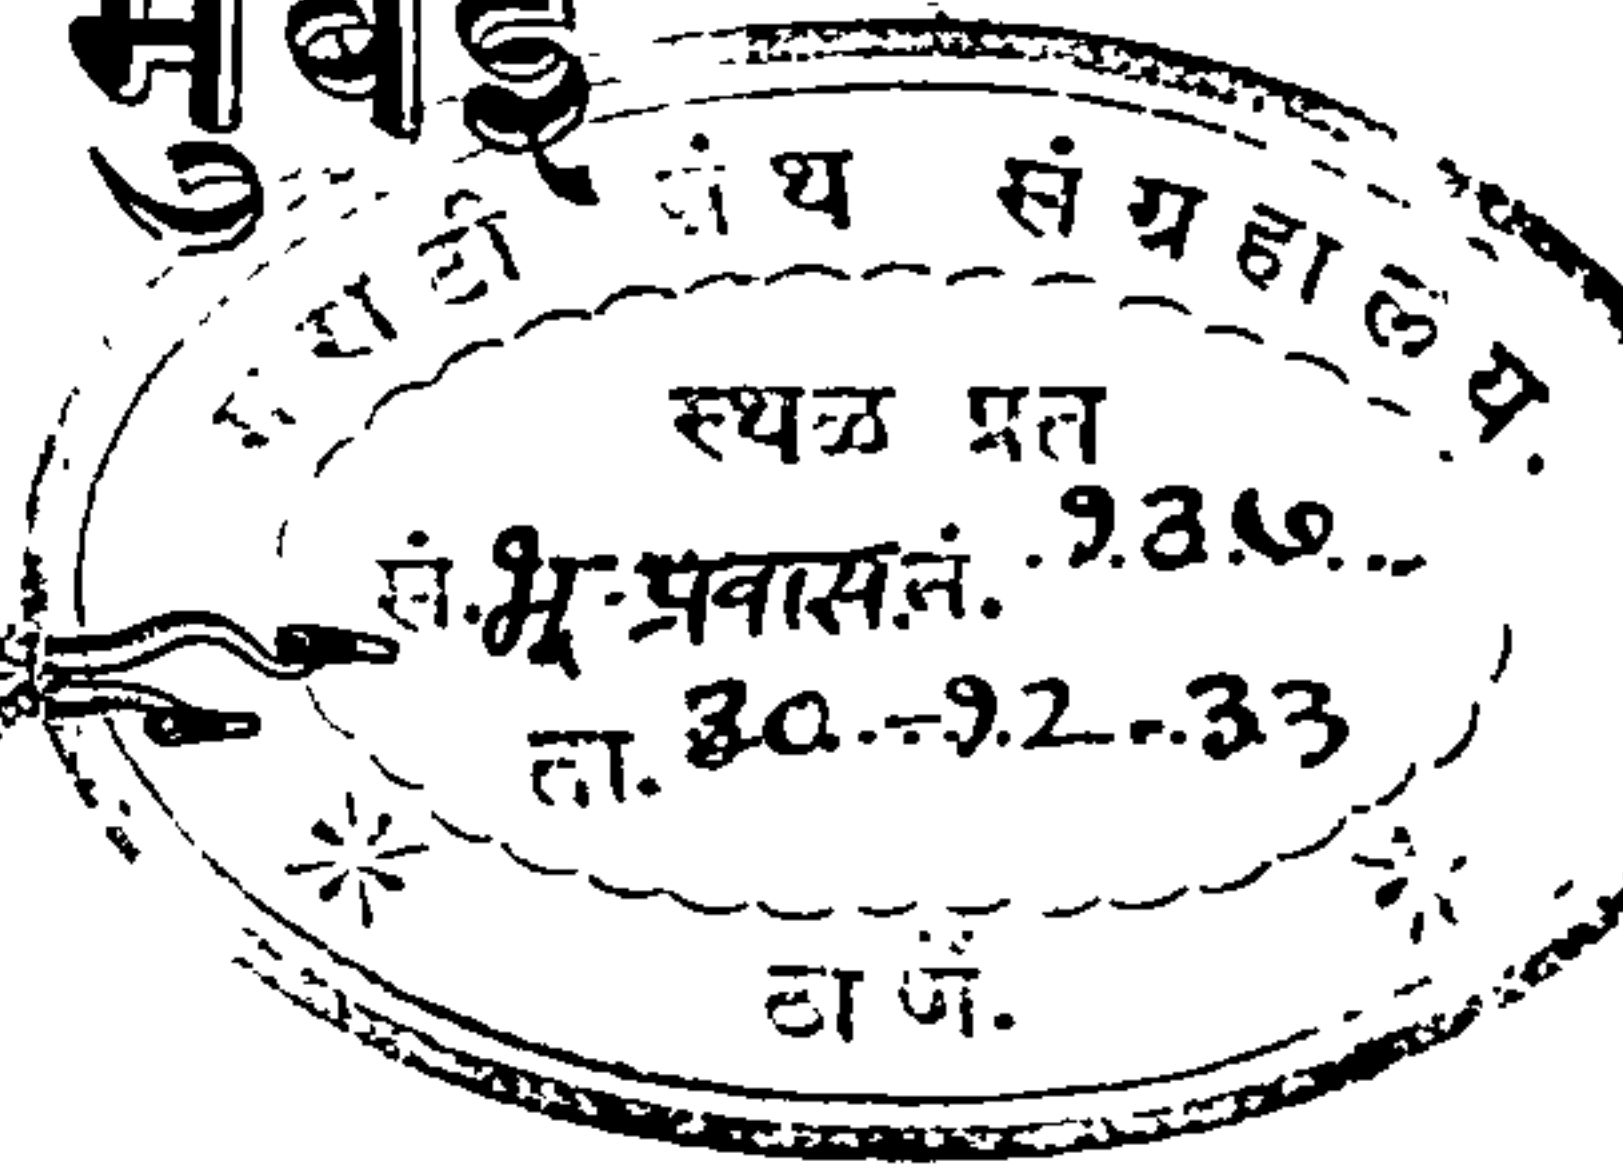 मुंबई
मराठी ग्रंथ संग्रहालय.
स्थळ प्रत
सं. भू-प्रवास. नं. १३७
ता. ३०-१२-३३
ठाणें.